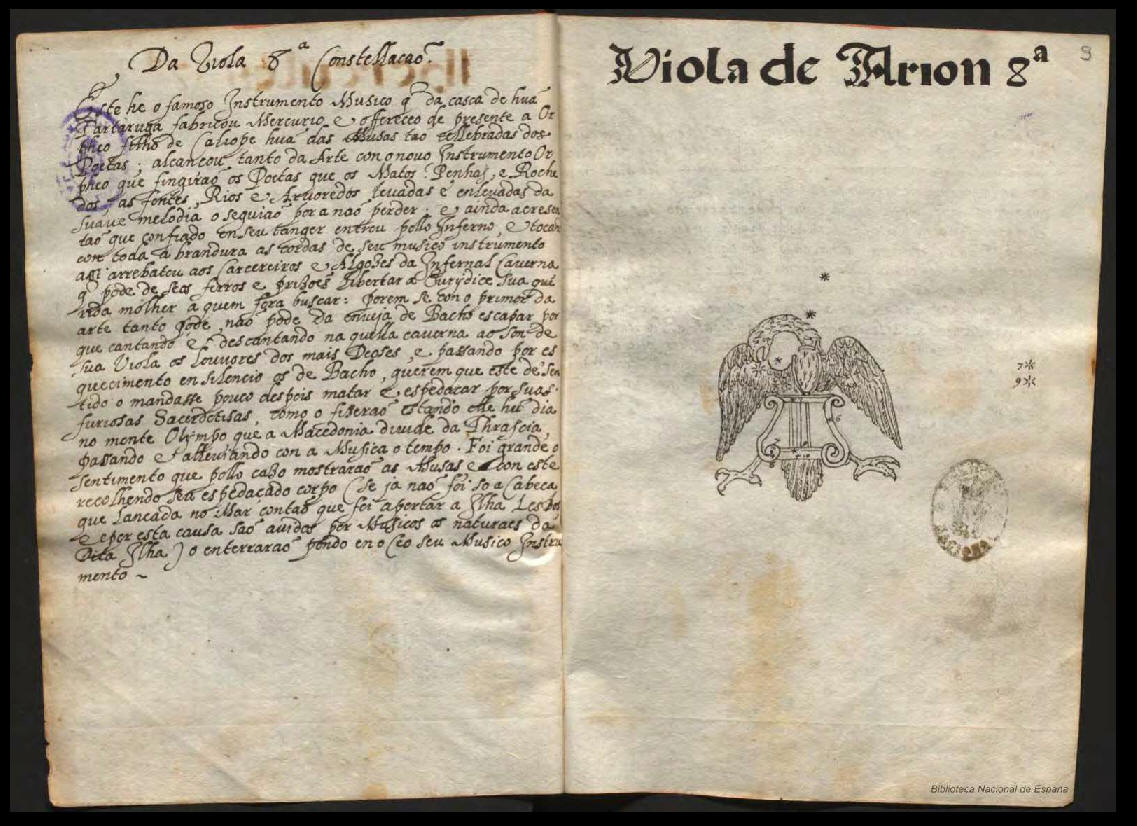 Da Viola 8ª Constellacaõ
Este he o famoso Instrumento Musico q̃ da casca de huã
Tartaruga fabricou Mercurio e offereceo de presente a Or
pheo filho de Caliope huã das Musas tao cellebradas dos
Poetas. alcancou tanto da Arte con o novo Instrumento Or
pheo que fingiraõ os Poetas que os Matos Penhas, e Roche
dos, as fontes, Rios e Arvoredos levadas e enlevadas da
suave melodia o seguiaõ por a naõ perder: e ainda acresen
taõ que confiado en seu tanger entrou pollo Inferno, e tocan
con toda a brandura as cordas de seu musico instrumento
assi arrebatou aos Carcereiros e Algozes da Infernal Caverna
q̃ pode de seus ferros e prizoes libertar a Eurydice sua que
rida molher a quem fora buscar: Porem se con o primor da
arte tanto pode, naõ pode da enveja de Bacho escapar por
que cantando e descantando na quella caverna ao son de
sua Viola os louvores dos mais Deoses, e passando por es
quecimento en silencio os de Bacho, querem que este de sen
tido o mandasse pouco despois matar e espedacar por suas
furiosas Sacerdotisas, como o fizeraõ estando elle hũ dia
no monte Olympo que a Macedonia divide da Thrascia,
passando e alleviando con a Musica o tempo. Foi grande o
sentimento que pollo cazo mostraraõ as Musas e con este
recolhendo seu espedacado corpo (se ja naõ foi so a Cabeca
que lancada no Mar contaõ que foi aportar a Ilha Lesbos
e por esta causa saõ avidos por Musicos os naturaes da
Dita Ilha) o enterraraõ pondo en o Ceo seu Musico Instru
mento ~
Viola de Arion 8ª
9
7*
9*
Biblioteca Nacional de España